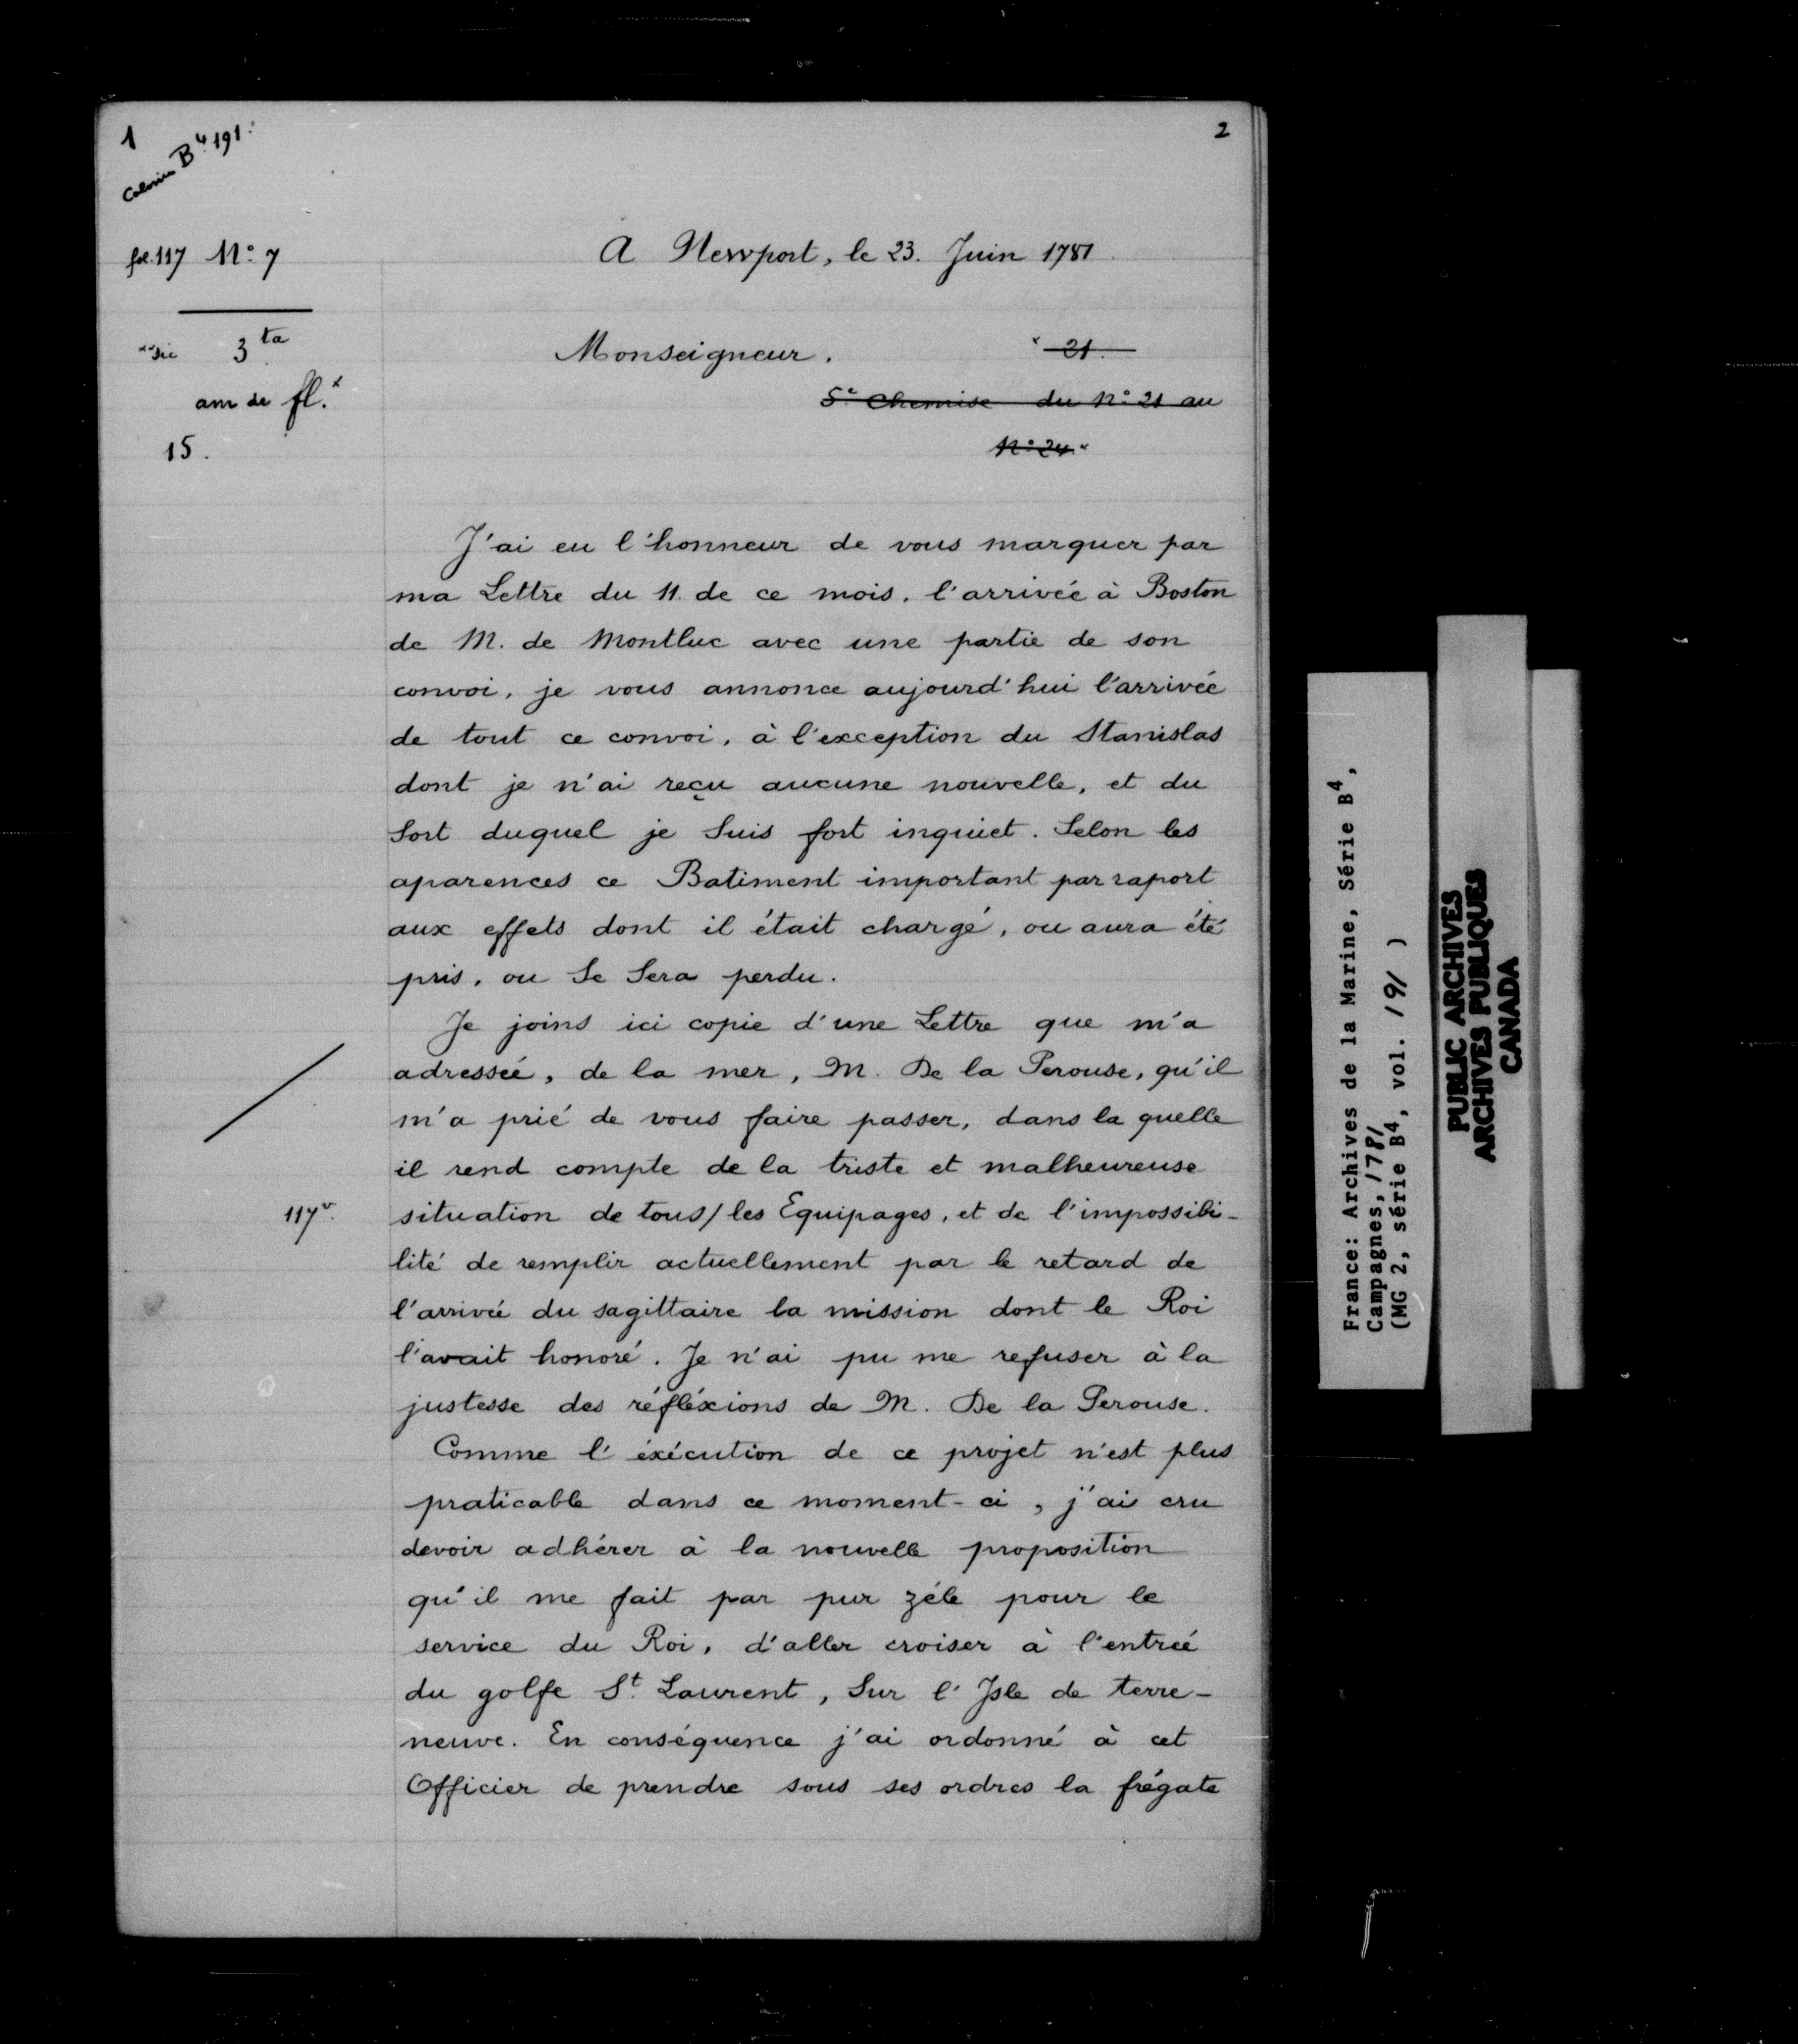 1
2
Colonies B⁴ 191.
fol. 117 N.° 7
A Newport, le 23. Juin 1781.
ˣ sic 3 ta
Monseigneur.
ˣ 21.
am de fl.ˣ
5.e Chemise du N.° 21 au
15.
N.° 24.ˣ
J'ai eu l'honneur de vous marquer par
ma Lettre du 11. de ce mois, l'arrivée à Boston
de M. de Montluc avec une partie de son
convoi, je vous annonce aujourd'hui l'arrivée
de tout ce convoi, à l'exception du Stanislas
dont je n'ai reçu aucune nouvelle, et du
Sort duquel je Suis fort inquiet. Selon les
aparences ce Batiment important par raport
aux effets dont il était chargé, ou aura été
pris, ou Se Sera perdu.
Je joins ici copie d'une Lettre que m'a
adressée, de la mer, M. De la Perouse, qu'il
m'a prié de vous faire passer, dans la quelle
il rend compte de la triste et malheureuse
117ᵛ. situation de tous/les Equipages, et de l'impossibi-
lité de remplir actuellement par le retard de
l'arrivée du sagittaire la mission dont le Roi
l'avait honoré. Je n'ai pu me refuser à la
justesse des réfléxions de M. De la Perouse.
Comme l'éxécution de ce projet n'est plus
praticable dans ce moment-ci, j'ai cru
devoir adhérer à la nouvelle proposition
qu'il me fait par pur zéle pour le
service du Roi, d'aller croiser à l'entrée
du golfe St. Laurent, Sur l'Isle de terre-
neuve. En conséquence j'ai ordonné à cet
Officier de prendre sous ses ordres la frégate
France: Archives de la Marine, Série B⁴,
Campagnes, 1781
(MG 2, série B⁴, vol. 191 )
PUBLIC ARCHIVES
ARCHIVES PUBLIQUES
CANADA